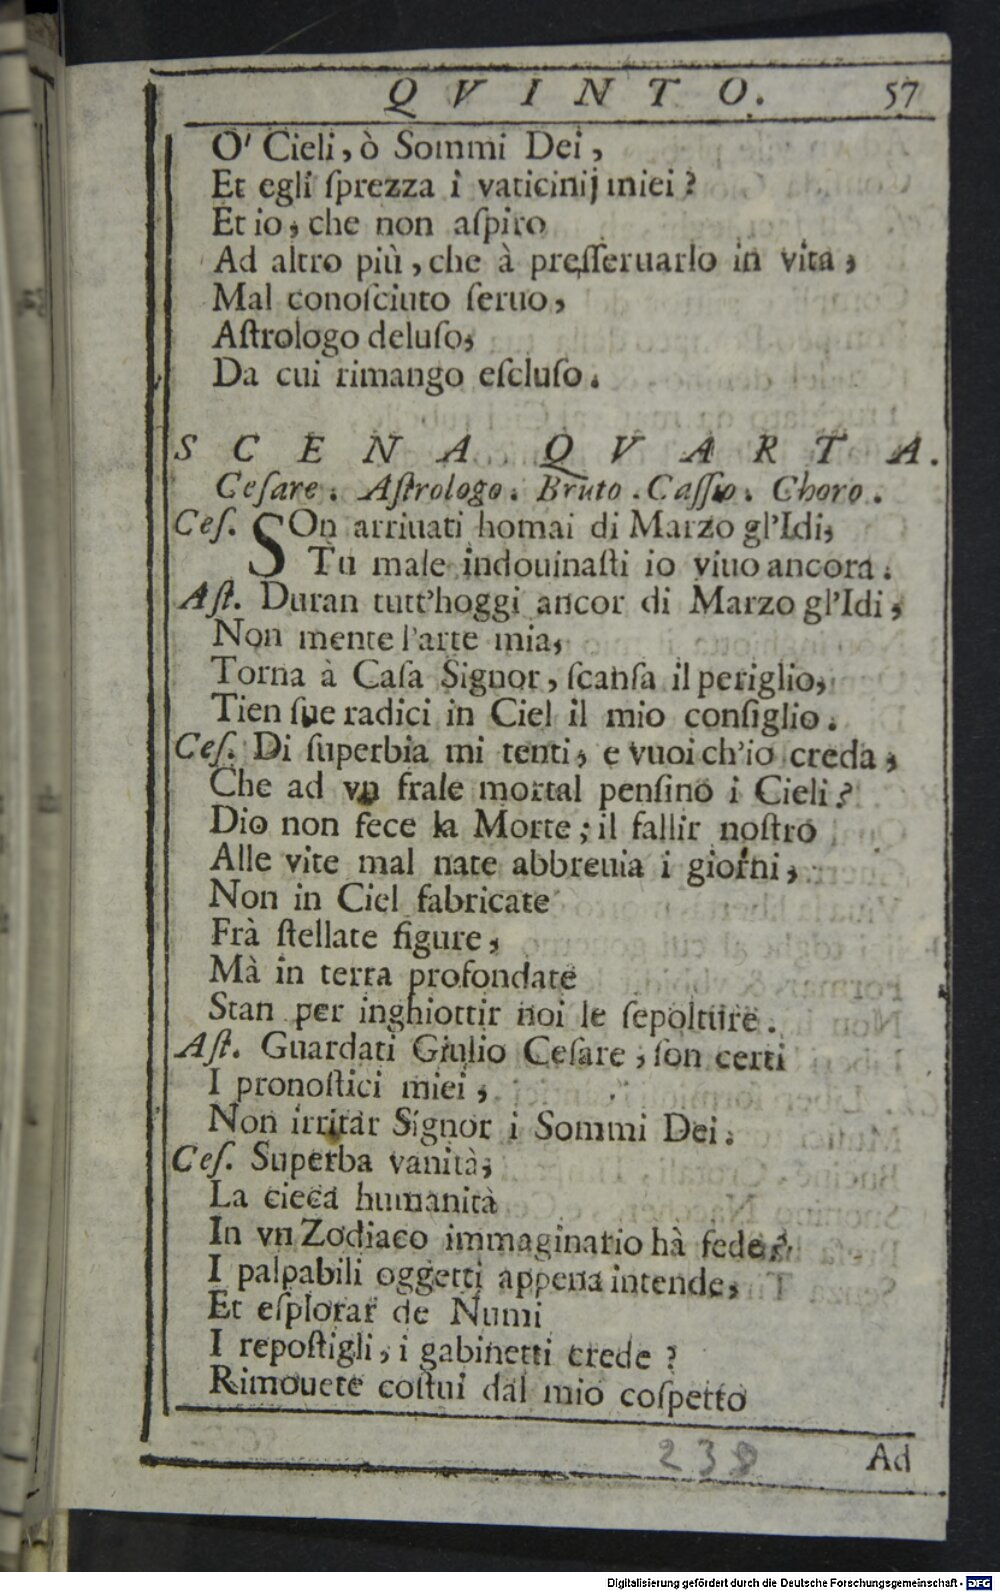 QVINTO. 57
O' Cieli, ò Sommi Dei,
Et egli ſprezza i vaticinij miei?
Et io, che non aſpiro
Ad altro più, che à preſſeruarlo in vita,
Mal conoſciuto ſeruo,
Aſtrologo deluſo,
Da cui rimango eſcluſo.
SCENA QVARTA.
Ceſare. Aſtrologo. Bruto. Caſſio. Choro.
Ceſ. SOn arriuati homai di Marzo gl'Idi,
Tu male indouinaſti io viuo ancora.
Aſt. Duran tutt'hoggi ancor di Marzo gl'Idi,
Non mente l'arte mia,
Torna à Caſa Signor, ſcanſa il periglio,
Tien ſue radici in Ciel il mio conſiglio.
Ceſ. Di ſuperbia mi tenti, e vuoi ch'io creda,
Che ad vn frale mortal penſino i Cieli?
Dio non fece la Morte; il fallir noſtro
Alle vite mal nate abbreuia i giorni,
Non in Ciel fabricate
Frà ſtellate figure,
Mà in terra profondate
Stan per inghiottir noi le ſepolture.
Aſt. Guardati Giulio Ceſare, ſon certi
I pronoſtici miei,
Non irritar Signor i Sommi Dei.
Ceſ. Superba vanità,
La cieca humanità
In vn Zodiaco immaginatio hà fede?
I palpabili oggetti appena intende,
Et eſplorar de Numi
I repoſtigli, i gabinetti crede?
Rimouete coſtui dal mio coſpetto
Ad
239
Digitalisierung gefördert durch die Deutsche Forschungsgemeinschaft - DFG